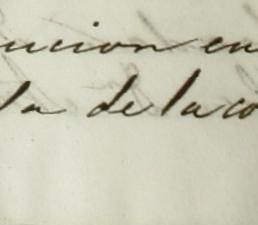 ucion en
la de laco